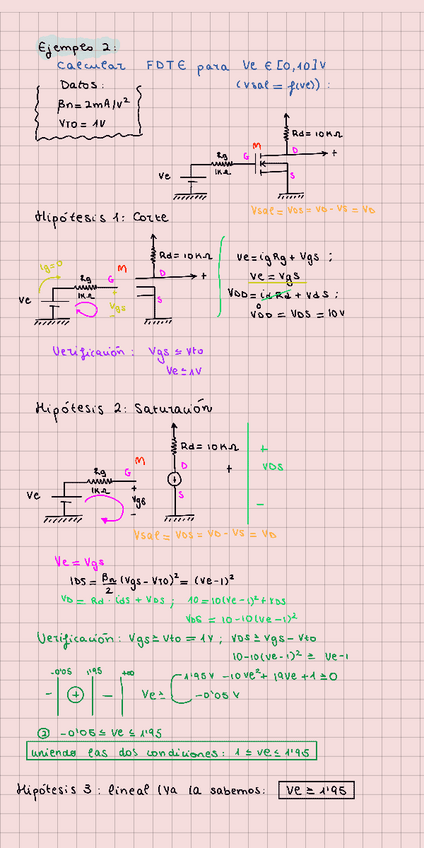 Ejemplo 2:
Calcular FDTE para Ve ∈ [0,10]V
(Vsal = f(ve)) :
Datos:
βn = 2mA/V²
VTO = 1V
Rd = 10KΩ
M
Rg
G
D
+
Ve
1KΩ
S
Vsal = VDS = VD - VS = VD
Hipótesis 1: Corte
Rd = 10KΩ
Ig=0
Rg
M
G
D
+
Ve
1KΩ
+
Vgs
-
S
ve = ig Rg + Vgs ;
Ve = Vgs
VDD = id Rd + Vds ;
0
VDD = VDS = 10V
Verificación: Vgs ≤ Vto
Ve ≤ 1V
Hipótesis 2: Saturación
Rd = 10KΩ
Rg
M
G
D
+
+
VDS
-
Ve
1KΩ
+
Vgs
-
S
Vsal = VDS = VD - VS = VD
Ve = Vgs
IDS = βn/2 (Vgs - VTO)² = (Ve-1)²
VD = Rd · ids + VDS ; 10 = 10(Ve-1)² + VDS
VDS = 10-10(Ve-1)²
Verificación: Vgs ≥ Vto = 1V ; VDS ≥ Vgs - Vto
10-10(Ve-1)² ≥ Ve-1
-0'05 1'95 +∞
- + -
Ve ≥
1'95V
-10Ve² + 19Ve + 1 ≥ 0
-0'05 V
② -0'05 ≤ Ve ≤ 1'95
uniendo las dos condiciones: 1 ≤ Ve ≤ 1'95
Hipótesis 3: lineal (Ya la sabemos: Ve ≥ 1'95